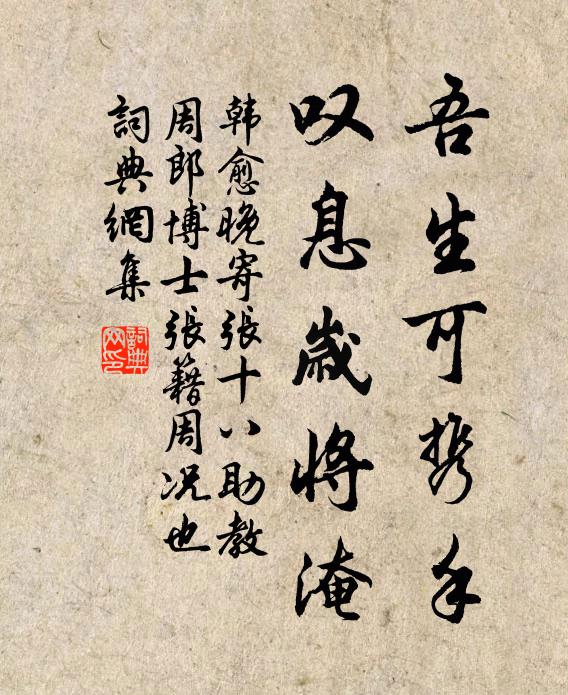 吾生可携手
叹息歲將淹
韩愈晚寄張十八助教
周郎博士張籍周况也
詞典網集
詞典网印